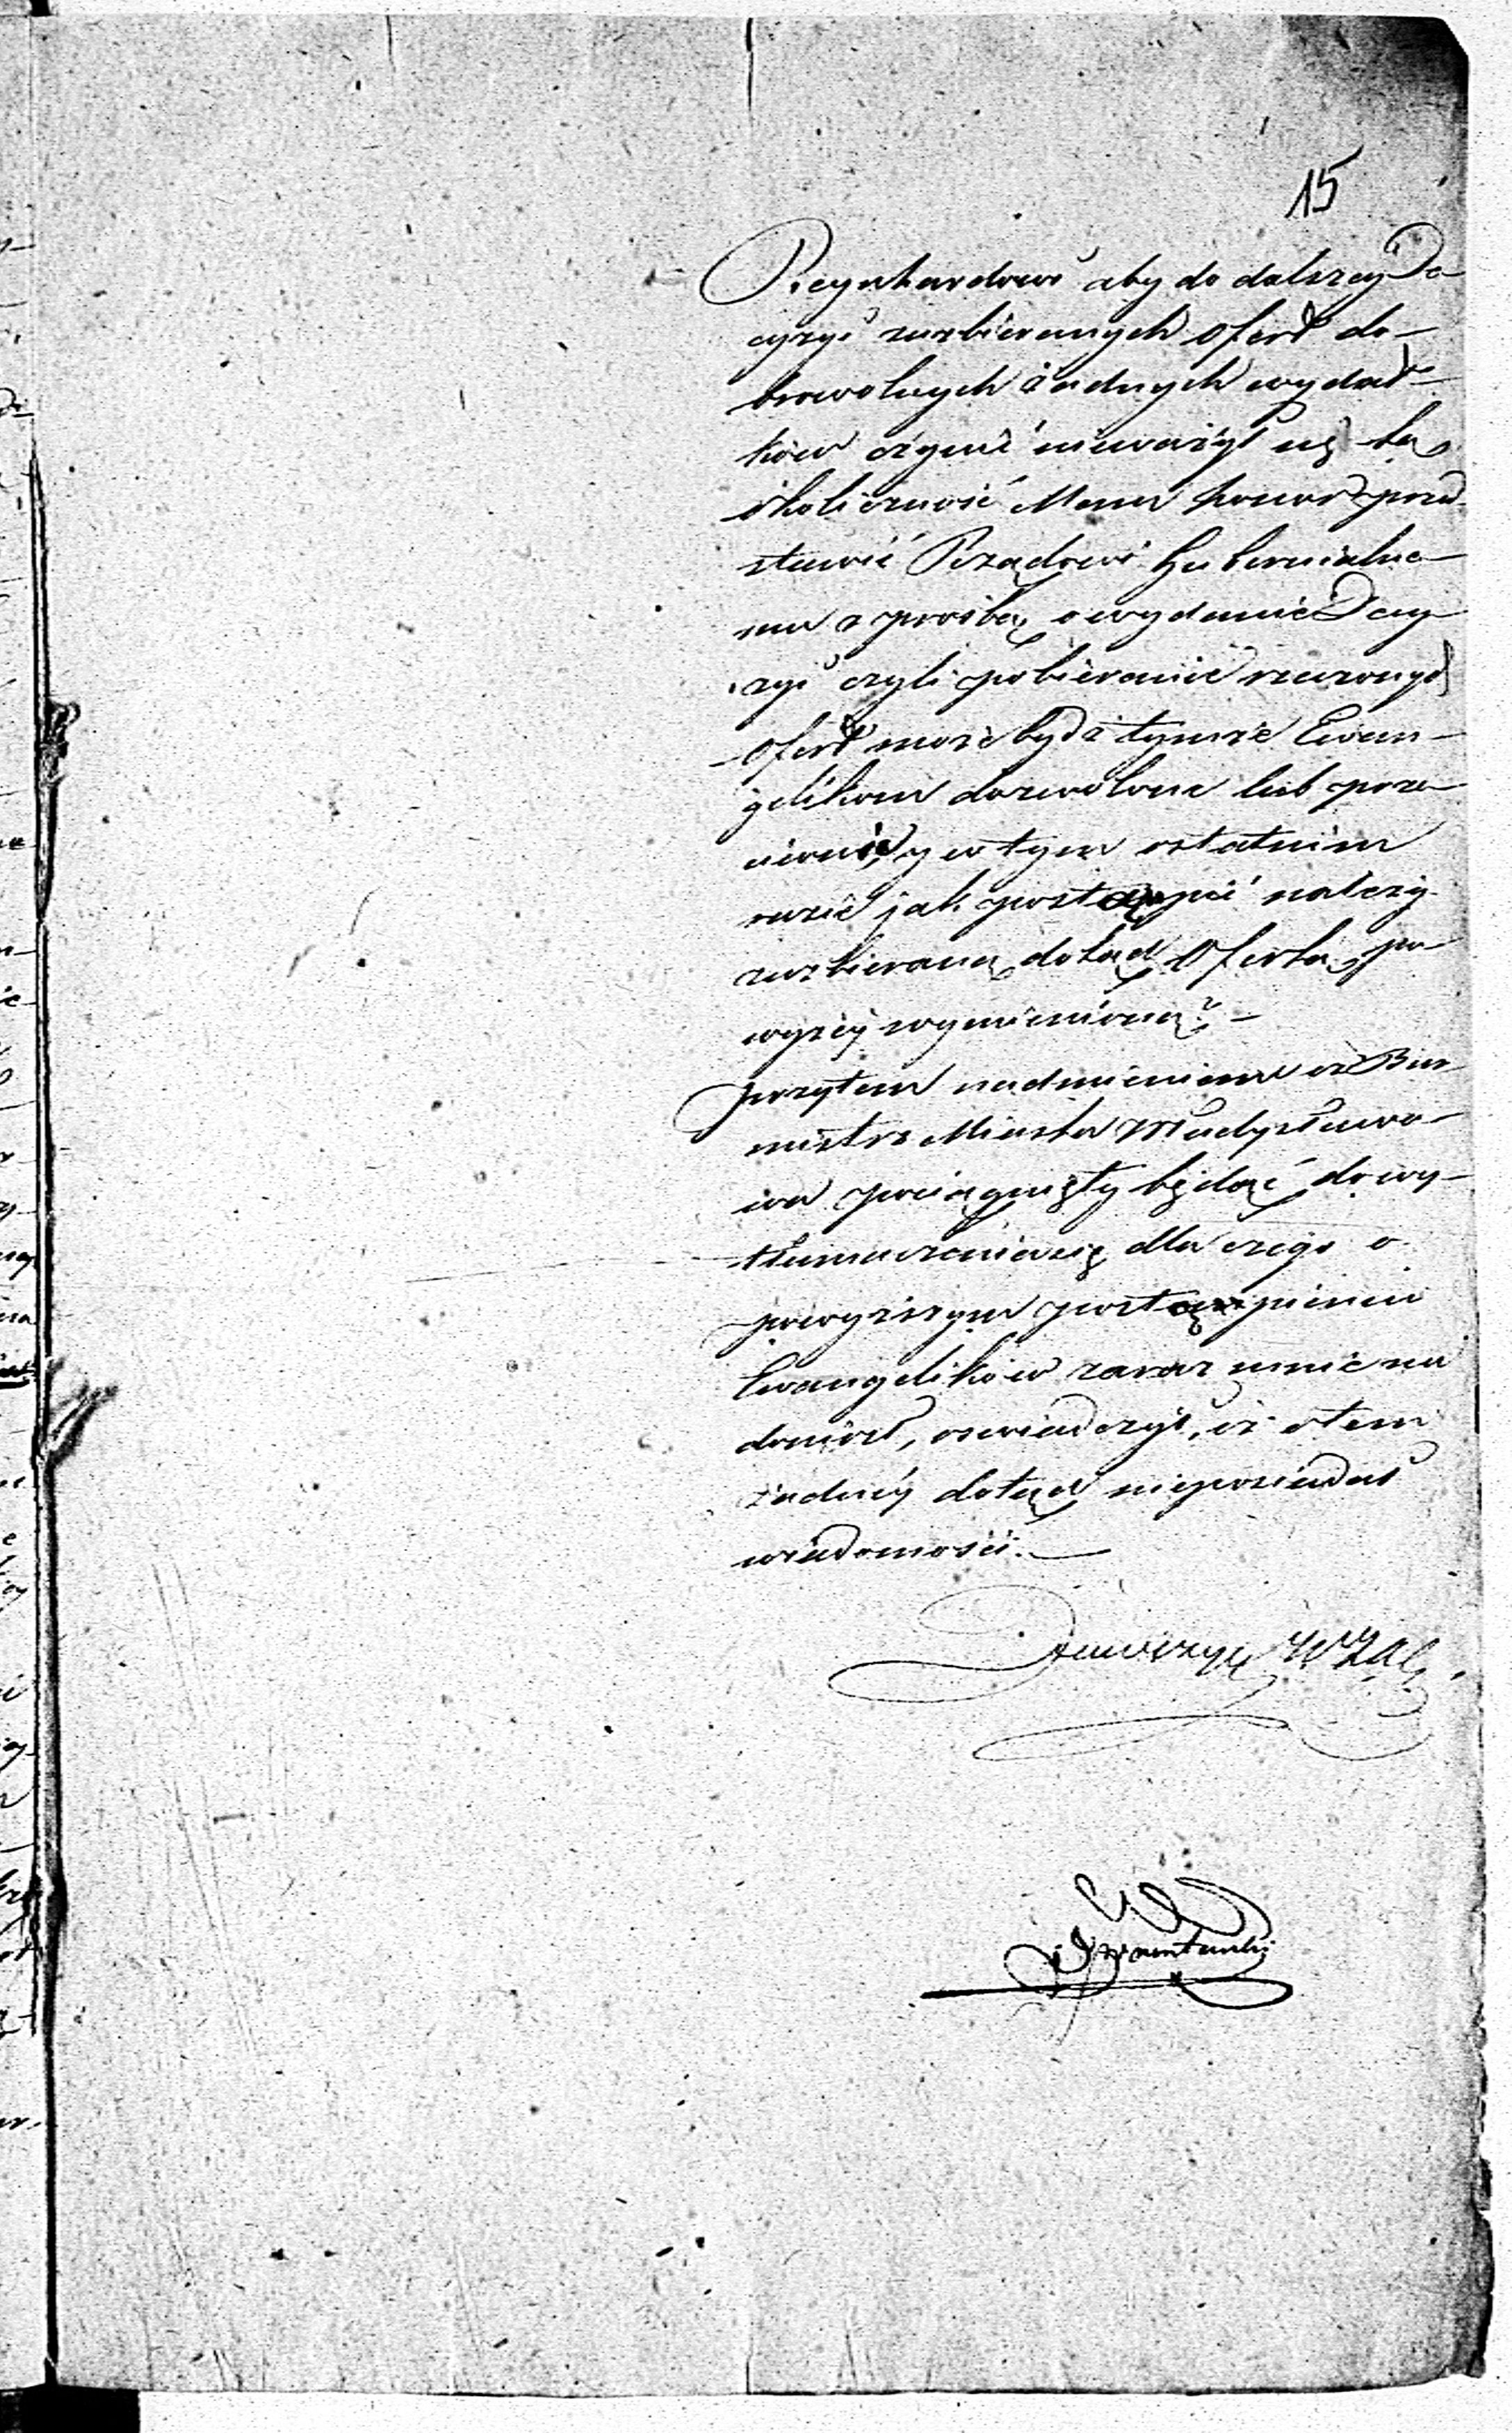 15
Reynhardowi aby do dalszey De
cyzyi zuzbieranych ofert do-
browolnych żadnych wydat-
ków czynić nieważył się tę
okoliczność Mam honor przed-
stawić Rządowi Gubernialne-
mu z prośbą o wydanie Decy-
zyi czyli pobieranie rzeczonych
Ofert może bydź tymże Ewan-
gelikom dozwolone lub prze-
ciwnie, y w tym ostatnim
razie jak postąpić należy
zuzbieraną dotąd Ofertą po-
wyżej wymienioną? —
przytem nadmieniam iż Bur-
mistrz Miasta Władysławo-
wa pociągnięty będąc do wy-
tłumaczenia się dla czego o
powyższym postąpieniu
Ewangelików zaraz mnie nie
doniósł, oświadczył, iż o tem
żadnéy dotąd nieposiadał
wiadomości. —